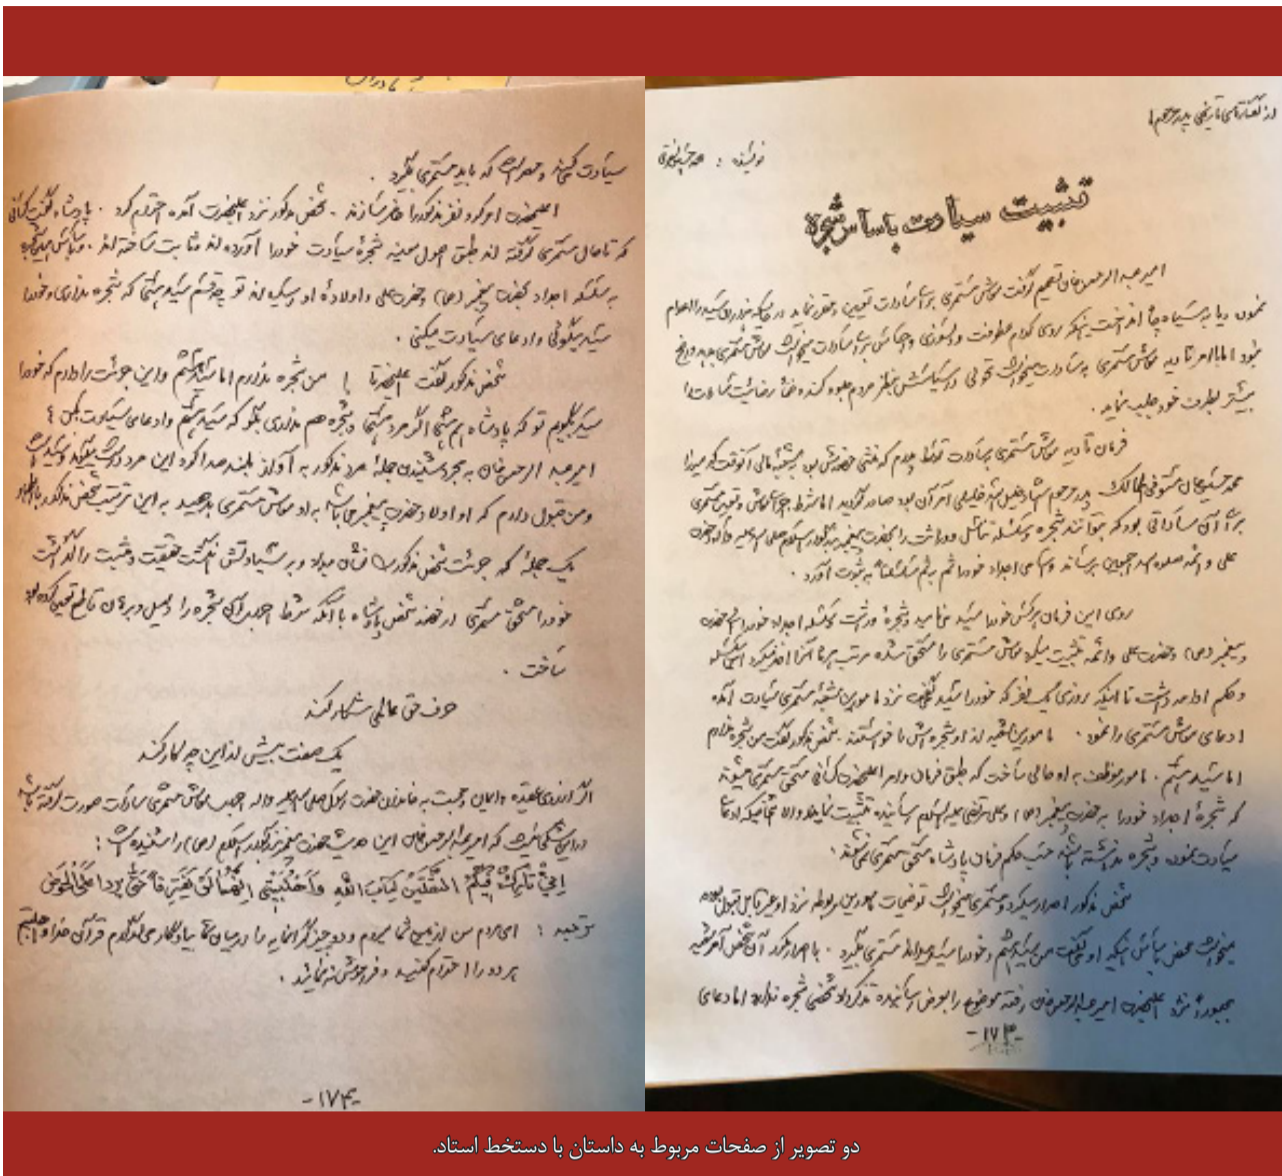 از گفتارهای تاریخی پدر مرحوم
نویسنده :
تثبیت سیادت باساس شجرهٔ
امیر عبدالرحمن خان تصمیم گرفت معاش مستمری برای سادات تعیین و مقرر نماید در حالیکه هزاران سید را اعدام
نمودن و یا به سیاه چاه انداخت نه اینکه روی کدام عطوفت و دلسوزی و احساس برای سادات میخواست معاش مستمری بدهد
شود اما با امر تادیه معاش مستمری به سادات میخواست تحولی در سیاستش بنظر مردم جلوه کننده
بیشتر بطرف خود جلب نماید .
فرمان تادیه معاش مستمری بسادات توسط پدرم که منشی حضورش بود به شعبه مالی آنوقت که میرزا
محمد حسین خان مستوفی الممالک پدر مرحوم استاد خلیل الله خلیلی آمر آن بود صادر گردید اما شرط اجرای معاش و تعیین مستمری
برای آن ساداتی بود که بتوانند شجره و سلسله تناسل و وراثت را بحضرت پیغمبر بزرگوار اسلام صلی الله علیه و آله و حضرت
علی و ائمه برساند و اسامی اجداد خود را اسم به اسم مسلسلاً به ثبوت آورد .
روی این فرمان هرکس خود را سید مینامید و شجرهٔ وراثت و سلسله اجداد خود را الی حضرت
پیغمبر (ص) و حضرت علی و ائمه تثبیت میکرد معاش مستمری را مستحق شده مرتب هر ماه آنرا اخذ میکرد
و حکم ادامه داشت تا اینکه روزی یک نفر که خود را سید میگفت نزد مامورین شعبهٔ مستمری سادات آمده
ادعای معاش مستمری را نمود . مامورین شعبه از او شجره اش را خواستند . شخص مذکور گفت من شجره ندارم
اما سید هستم . مامور موظف به او حالی ساخت که طبق فرمان و امر اعلیحضرت کسانی مستحق مستمری میشوند
که شجرهٔ اجداد خود را به حضرت پیغمبر (ص) و علی مرتضی علیه السلام رسانیده تثبیت نمایند و الا اشخاصیکه ادعای
سیادت نموده و شجره نداشته باشند حسب حکم فرمان پادشاه مستحق مستمری نمی باشند .
شخص مذکور اصرار میکرد و مستمری میخواست توضیحات مامورین مربوطه نزد او غیر قابل قبول بوده
میخواست محض به پاس اینکه او میگفت من سید هستم و خود را سید میداند مستمری بگیرد . با اصرار مکرر آن شخص آمر شعبه
مجبوراً نزد اعلیحضرت امیر عبدالرحمن خان رفته موضوع را بعرض رسانیده تذکر داد شخصی شجره ندارد اما دعای
-۱۷۳-
سیادت میکند و مصر است که باید مستمری بگیرد .
اعلیحضرت امر کرد نفر مذکور را حاضر سازند . شخص مذکور نزد اعلیحضرت آمده احترام کرد . پادشاه گفت کسانی
که تا حال مستمری گرفته اند طبق اصول معینه شجرهٔ سیادت خود را آورده اند و ثابت ساخته اند .
به سلسله اجداد بحضرت پیغمبر (ص) و حضرت علی و اولادهٔ او رسیده اند تو چه قسم سید هستی که شجره نداری و خود را
سید میگوئی و ادعای سیادت میکنی .
شخص مذکور گفت اعلیحضرتا ! من شجره ندارم اما سید هستم و این جرئت را دارم که خود را
سید بگویم تو که پادشاه هم هستی اگر مرد هستی و شجره هم نداری بگو که سید هستم و ادعای سیادت بکن ؟
امیر عبدالرحمن خان به مجرد شنیدن جملهٔ مرد مذکور به آواز بلند صدا کرد این مرد درست میگوید و سید است
و من قبول دارم که او اولاد حضرت پیغمبر می باشد به او معاش مستمری بدهید به این ترتیب شخص مذکور
یک جمله که جرئت شخص مذکور را نشان میداد و بر سیادتش انگشت حقیقت و مثبت را گذاشت
خود را مستحق مستمری از حضور شخص پادشاه با آنکه شرط اجرای آن شجره را دلیل و برهان قاطع تعیین کرده بود
ساخت .
حرف حق عالمی شکار کند
یک صفت بیش از این چه کار کند
اگر از روی عقیده و ایمان و محبت به خاندان حضرت رسول صلی الله علیه و اله اجرای معاش مستمری سادات صورت گرفته باشد
در این شکی نیست که امیر عبدالرحمن خان این حدیث حضرت پیغمبر بزرگوار اسلام (ص) را شنیده است :
اِنّی تارِکٌ فیکُمُ الثَّقَلَینِ کِتابَ اللهِ وَ اَهْلُبَیْتِی اِنَّهُما لَنْ یَفْتَرِقا حَتّی یَرِدا عَلَیَّ الْحَوض
ترجمه : ای مردم من از بین شما میروم و دو چیز گرانمایه را در میان شما بیادگار می گذارم قرآن خدا و اهلبیتم
هر دو را احترام کنید و فراموش ننمائید .
-۱۷۴-
دو تصویر از صفحات مربوط به داستان با دستخط استاد.